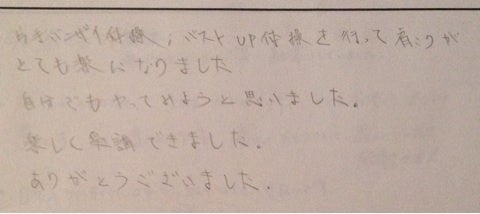 バンザイ体操、バストUP体操を行って肩こりが
とても楽になりました
自分でもやってみようと思いました。
楽しく受講できました。
ありがとうございました。